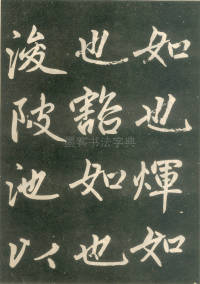 如也煇如
也豁如也
浚陂池以
墨客书法字典